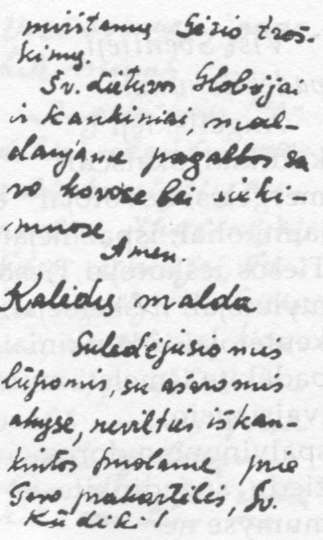 mirštamų Tavo troš-
kimų.
Šv. Lietuvos Globėja
ir kankiniai, mal-
daujame pagalbos sa
vo kovose bei sieki-
muose
Amen.
Kalėdų malda
Suledėjusiomis
lūpomis, su ašaromis
akyse, nevilties iškan-
kintos puolame prie
Tavo prakartėlės, šv.
Kūdiki